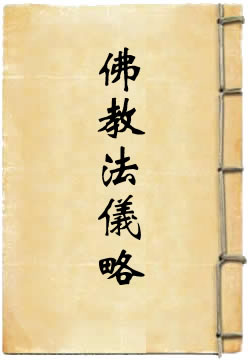 佛教法儀略